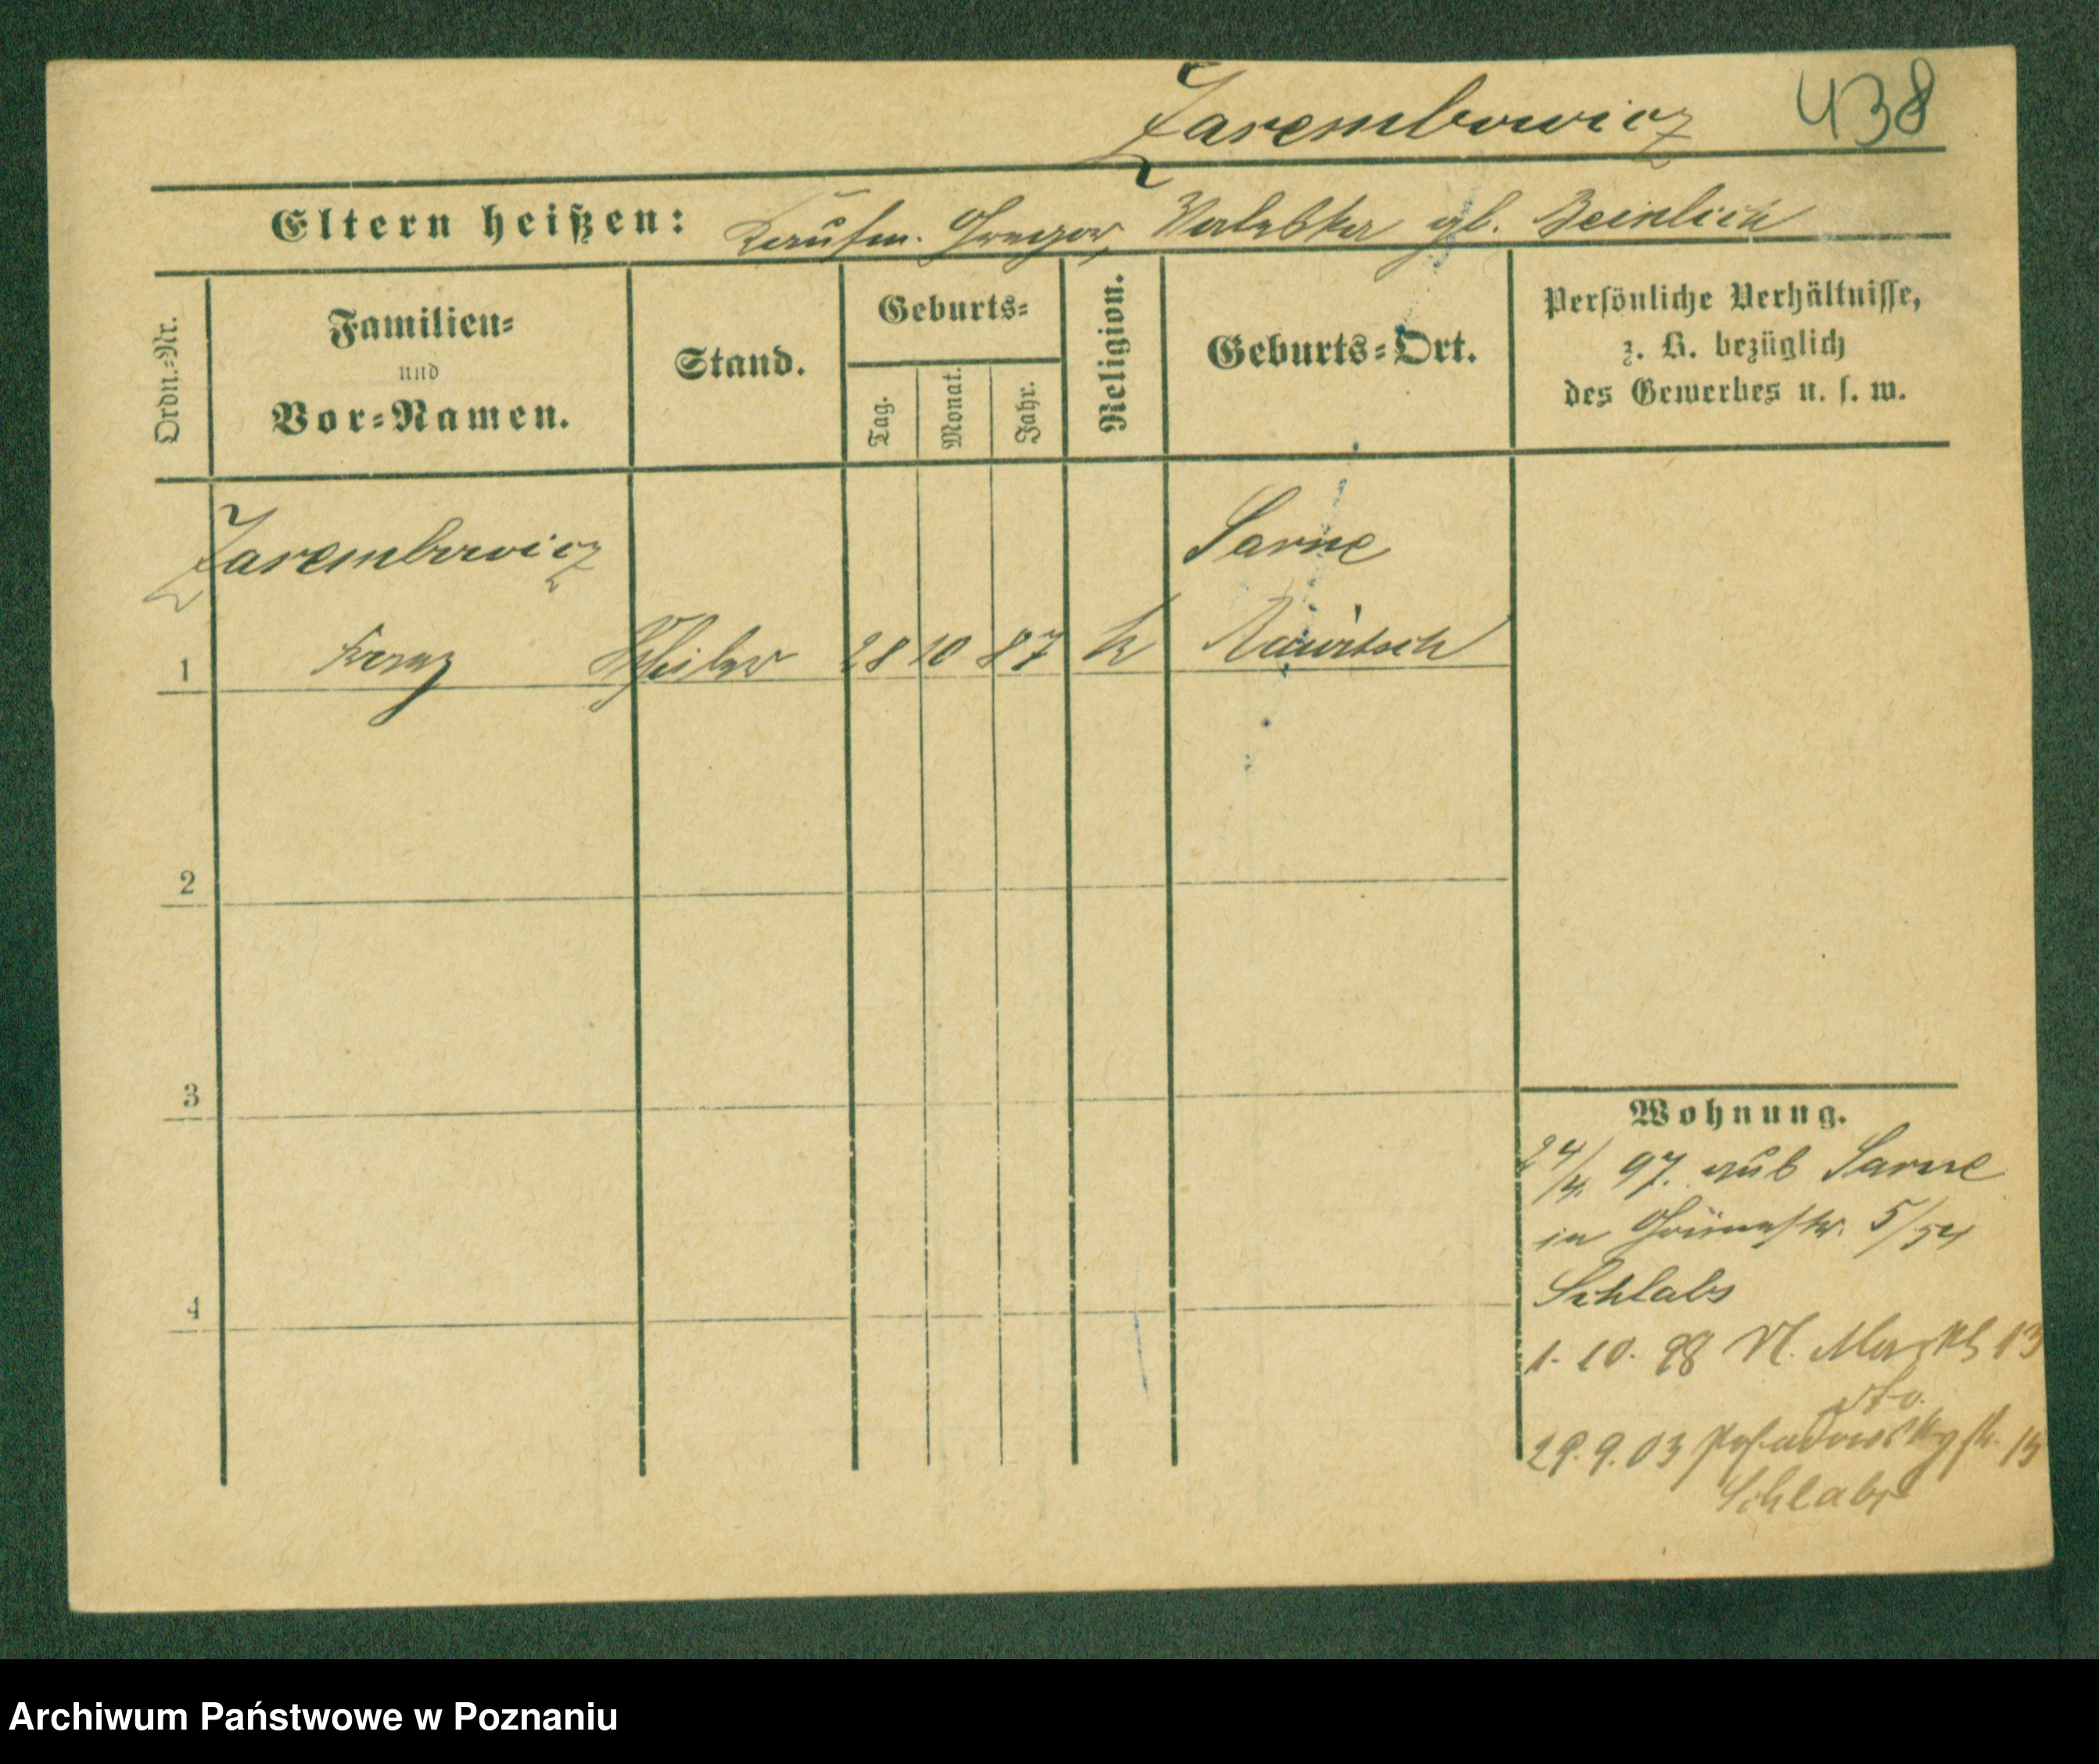 Zarembowicz 438
Eltern heißen: Kaufm. Gregor, Valeska gb. Beinlich
Ordn.-Nr.
Familien-
und
Vor-Namen.
Stand.
Geburts-
Tag.
Monat.
Jahr.
Religion.
Geburts-Ort.
Persönliche Verhältnisse,
z. B. bezüglich
des Gewerbes u. s. w.
Zarembowicz Sarne
1 Franz Schüler 28 10 87 k Rawitsch
2
3
4
Wohnung.
24/4. 97. aus Sarne
in Grünestr. 5/54
Schlabs
1. 10. 98 N. Markt 13
dto.
29. 9. 03 Posadowskystr. 15
Schlabs
Archiwum Państwowe w Poznaniu